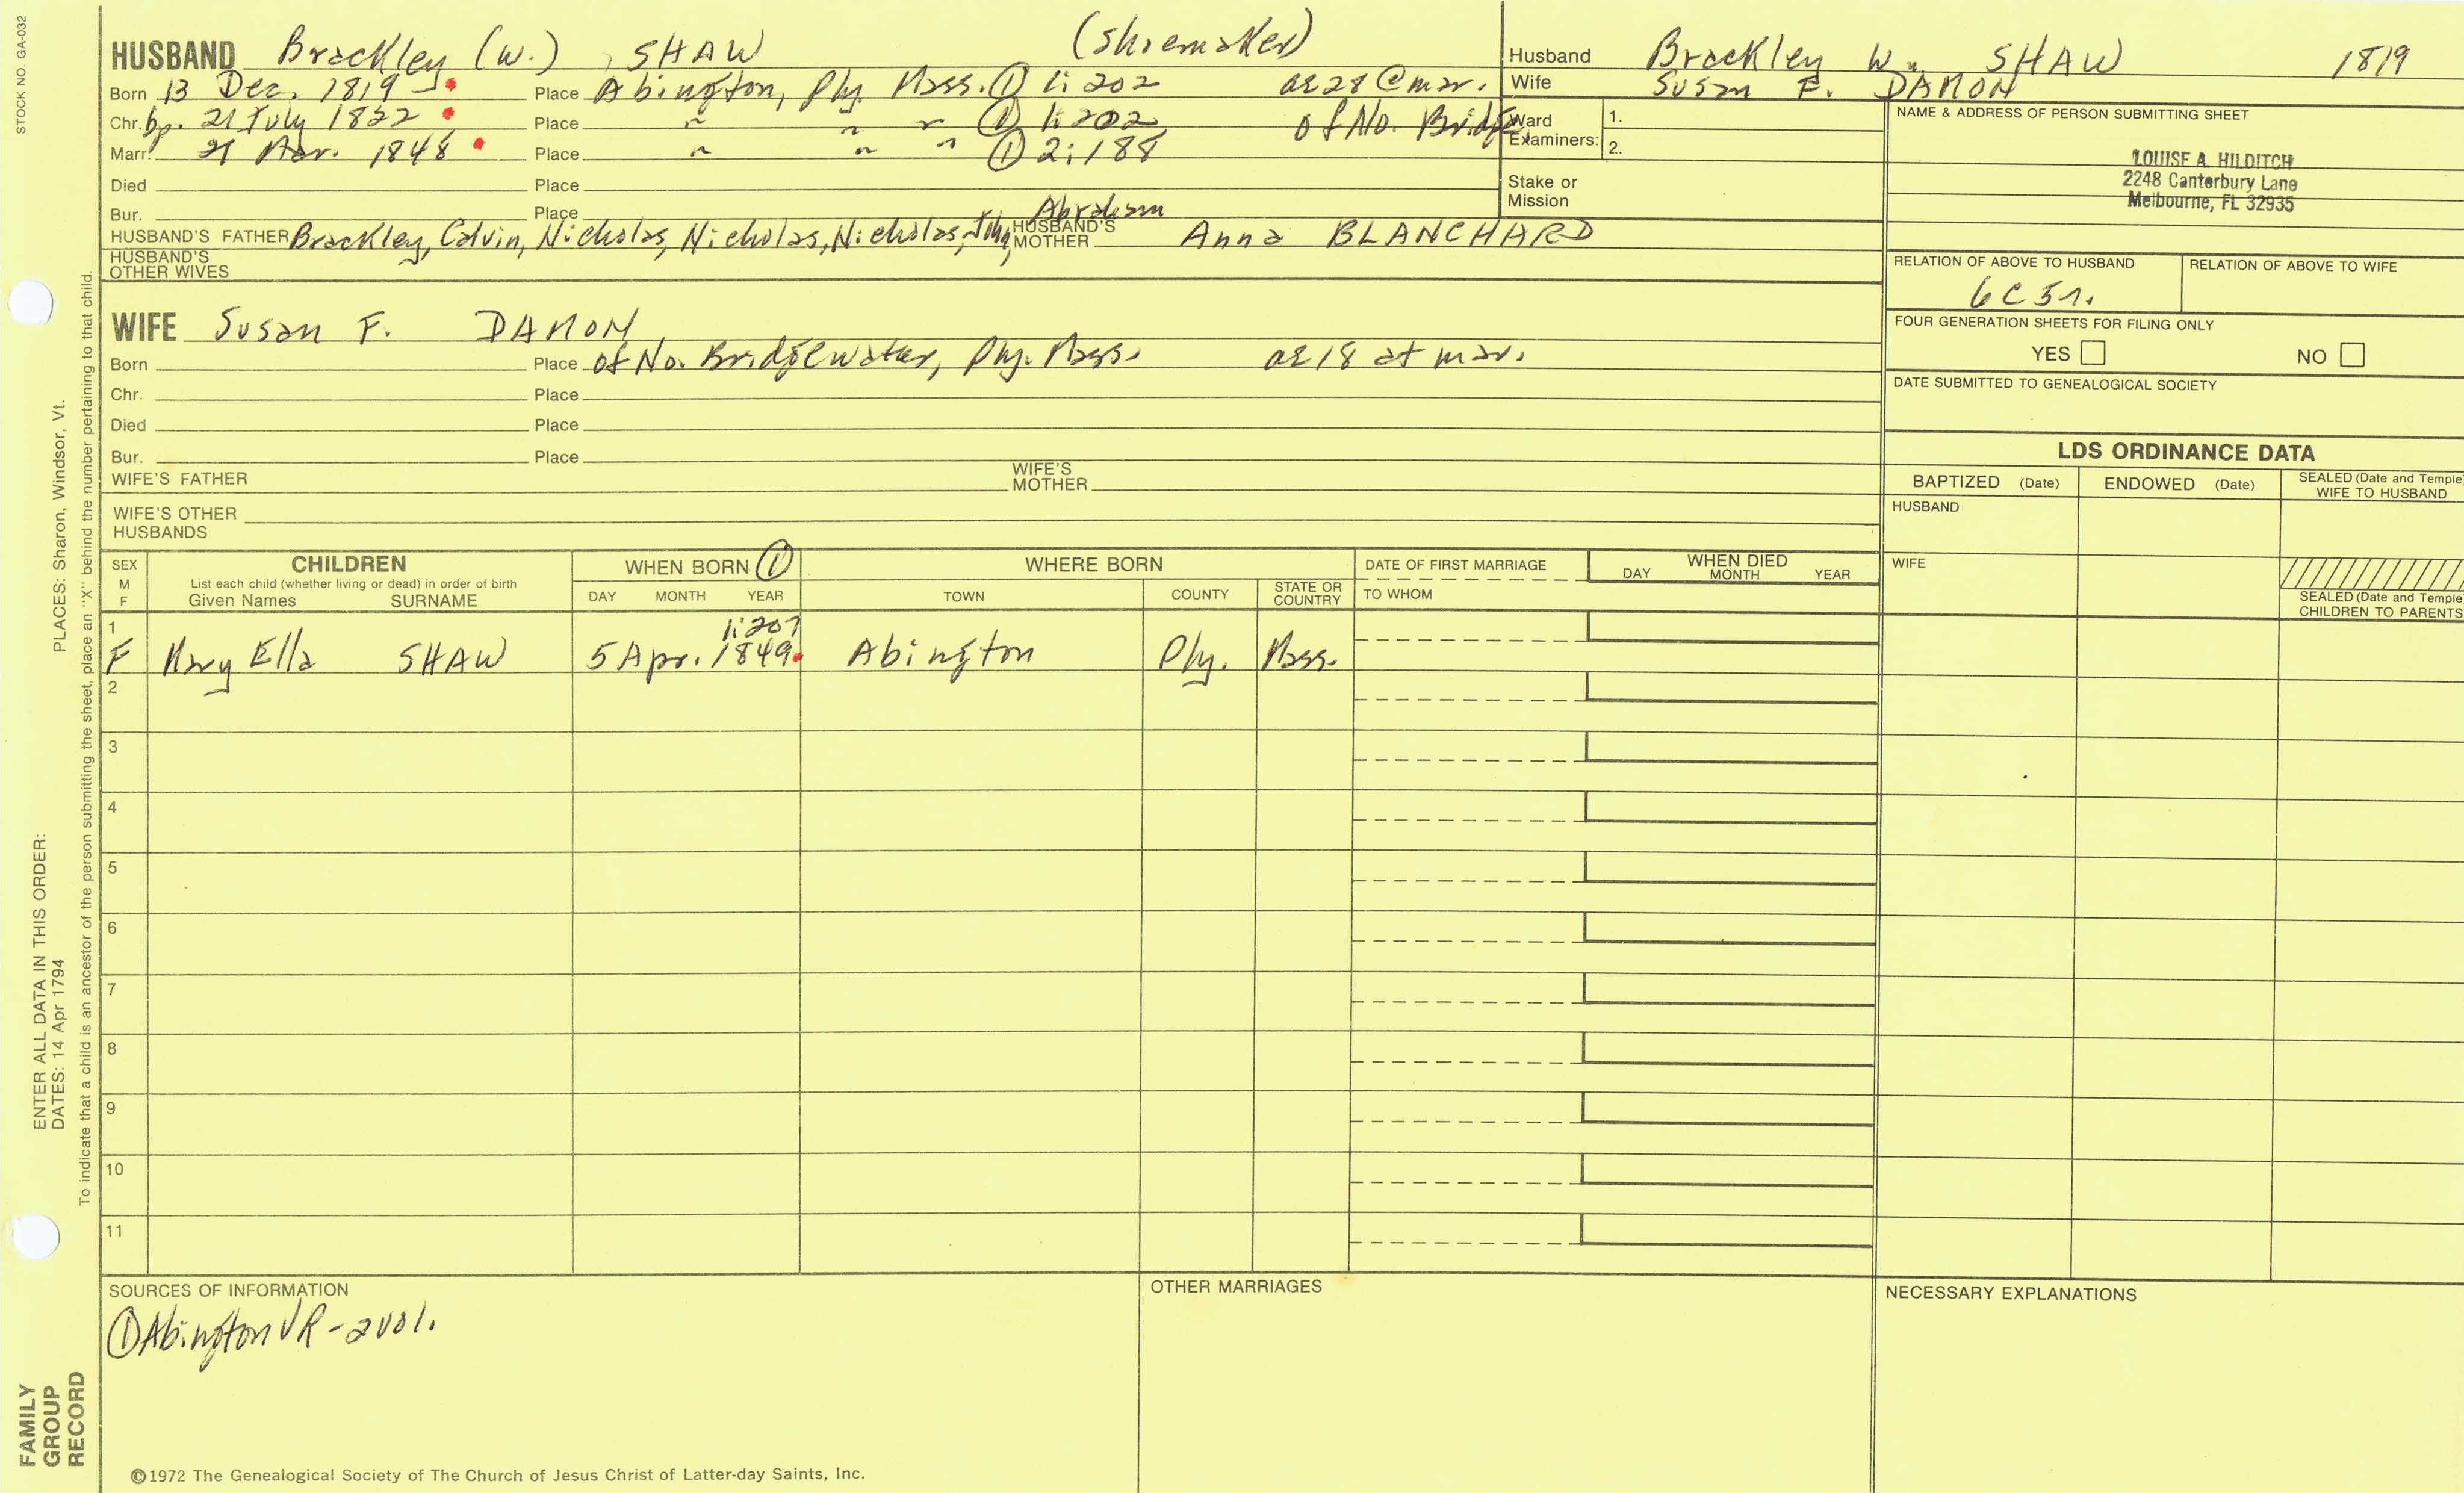 STOCK NO. GA-032
HUSBAND Brackley (W.) , SHAW (shoemaker)
Born 13 Dec. 1819 Place Abington, Ply. Mass. ① 1:202 ae 28 @ mar.
Chr. bp. 21 July 1822 Place " " " ① 1:202 of No. Bridge
Marr. Mar. 1848 Place " " " ① 2:188
Died Place
Bur. Place
Abraham
HUSBAND'S FATHER Brackley, Calvin, Nicholas, Nicholas, Nicholas, John, HUSBAND'S MOTHER Anna BLANCHARD
HUSBAND'S OTHER WIVES
WIFE Susan F. DAMON
Born Place of No. Bridgewater, Ply. Mass. ae 18 at mar.
Chr. Place
Died Place
Bur. Place
WIFE'S FATHER WIFE'S MOTHER
WIFE'S OTHER HUSBANDS
Husband Brackley W. SHAW 1819
Wife Susan F. DAMON
Ward Examiners: 1.
2.
Stake or Mission
NAME & ADDRESS OF PERSON SUBMITTING SHEET
LOUISE A. HILDITCH
2248 Canterbury Lane
Melbourne, FL 32935
RELATION OF ABOVE TO HUSBAND RELATION OF ABOVE TO WIFE
6C5r.
FOUR GENERATION SHEETS FOR FILING ONLY
YES NO
DATE SUBMITTED TO GENEALOGICAL SOCIETY
LDS ORDINANCE DATA
BAPTIZED (Date) ENDOWED (Date) SEALED (Date and Temple) WIFE TO HUSBAND
HUSBAND
WIFE
SEALED (Date and Temple) CHILDREN TO PARENTS
SEX M F CHILDREN WHEN BORN ① WHERE BORN DATE OF FIRST MARRIAGE WHEN DIED
List each child (whether living or dead) in order of birth
Given Names SURNAME DAY MONTH YEAR TOWN COUNTY STATE OR COUNTRY TO WHOM DAY MONTH YEAR
1 1:207
F Mary Ella SHAW 5 Apr. 1849 Abington Ply. Mass.
2
3
4
5
6
7
8
9
10
11
SOURCES OF INFORMATION OTHER MARRIAGES NECESSARY EXPLANATIONS
① Abington VR - 2 vol.
©1972 The Genealogical Society of The Church of Jesus Christ of Latter-day Saints, Inc.
FAMILY GROUP RECORD
ENTER ALL DATA IN THIS ORDER:
DATES: 14 Apr 1794 PLACES: Sharon, Windsor, Vt.
To indicate that a child is an ancestor of the person submitting the sheet, place an "X" behind the number pertaining to that child.